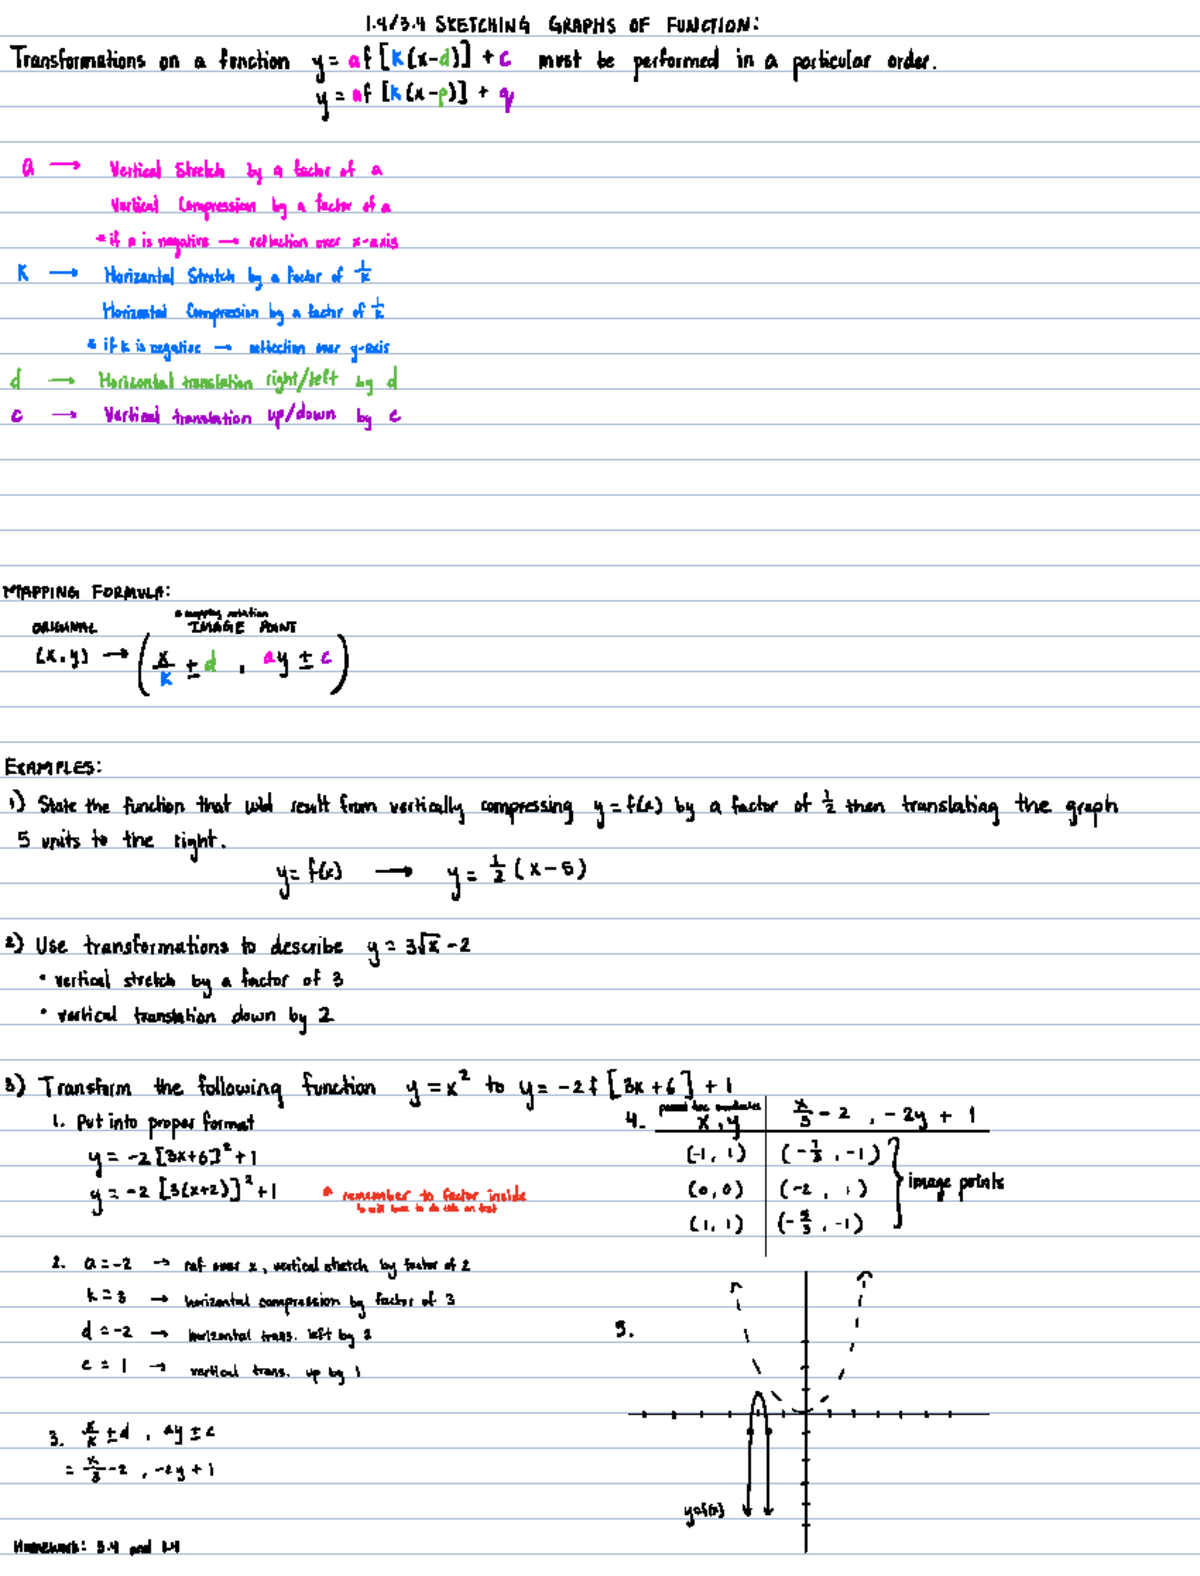 1.4/3.4 SKETCHING GRAPHS OF FUNCTION:
Transformations on a function y = af [k(x-d)] + c must be performed in a particular order.
y = af [k(x-p)] + q
a → Vertical Stretch by a factor of a
Vertical Compression by a factor of a
* if a is negative → reflection over x-axis
K → Horizontal Stretch by a factor of 1/k
Horizontal Compression by a factor of 1/k
* if k is negative → reflection over y-axis
d → Horizontal translation right/left by d
c → Vertical translation up/down by c
MAPPING FORMULA:
* mapping notation
ORIGINAL IMAGE POINT
(x,y) → (x/k ± d , ay ± c)
EXAMPLES:
1) State the function that would result from vertically compressing y = f(x) by a factor of 1/2 then translating the graph
5 units to the right.
y = f(x) → y = 1/2 (x-5)
2) Use transformations to describe y = 3√x - 2
• vertical stretch by a factor of 3
• vertical translation down by 2
3) Transform the following function y = x² to y = -2f [3x+6] + 1
1. Put into proper format
y = -2 [3x+6]² + 1
y = -2 [3(x+2)]² + 1
* remember to factor inside
2. a = -2 → ref over x, vertical stretch by factor of 2
k = 3 → horizontal compression by factor of 3
d = -2 → horizontal trans. left by 2
c = 1 → vertical trans. up by 1
3. x/k ± d , ay ± c
= x/3 - 2 , -2y + 1
4. x , y x/3 - 2 , -2y + 1
(-1, 1) (-7/3, -1)
(0, 0) (-2, 1) image points
(1, 1) (-5/3, -1)
5.
y=f(x)
Homework: 3.4 and 1.4